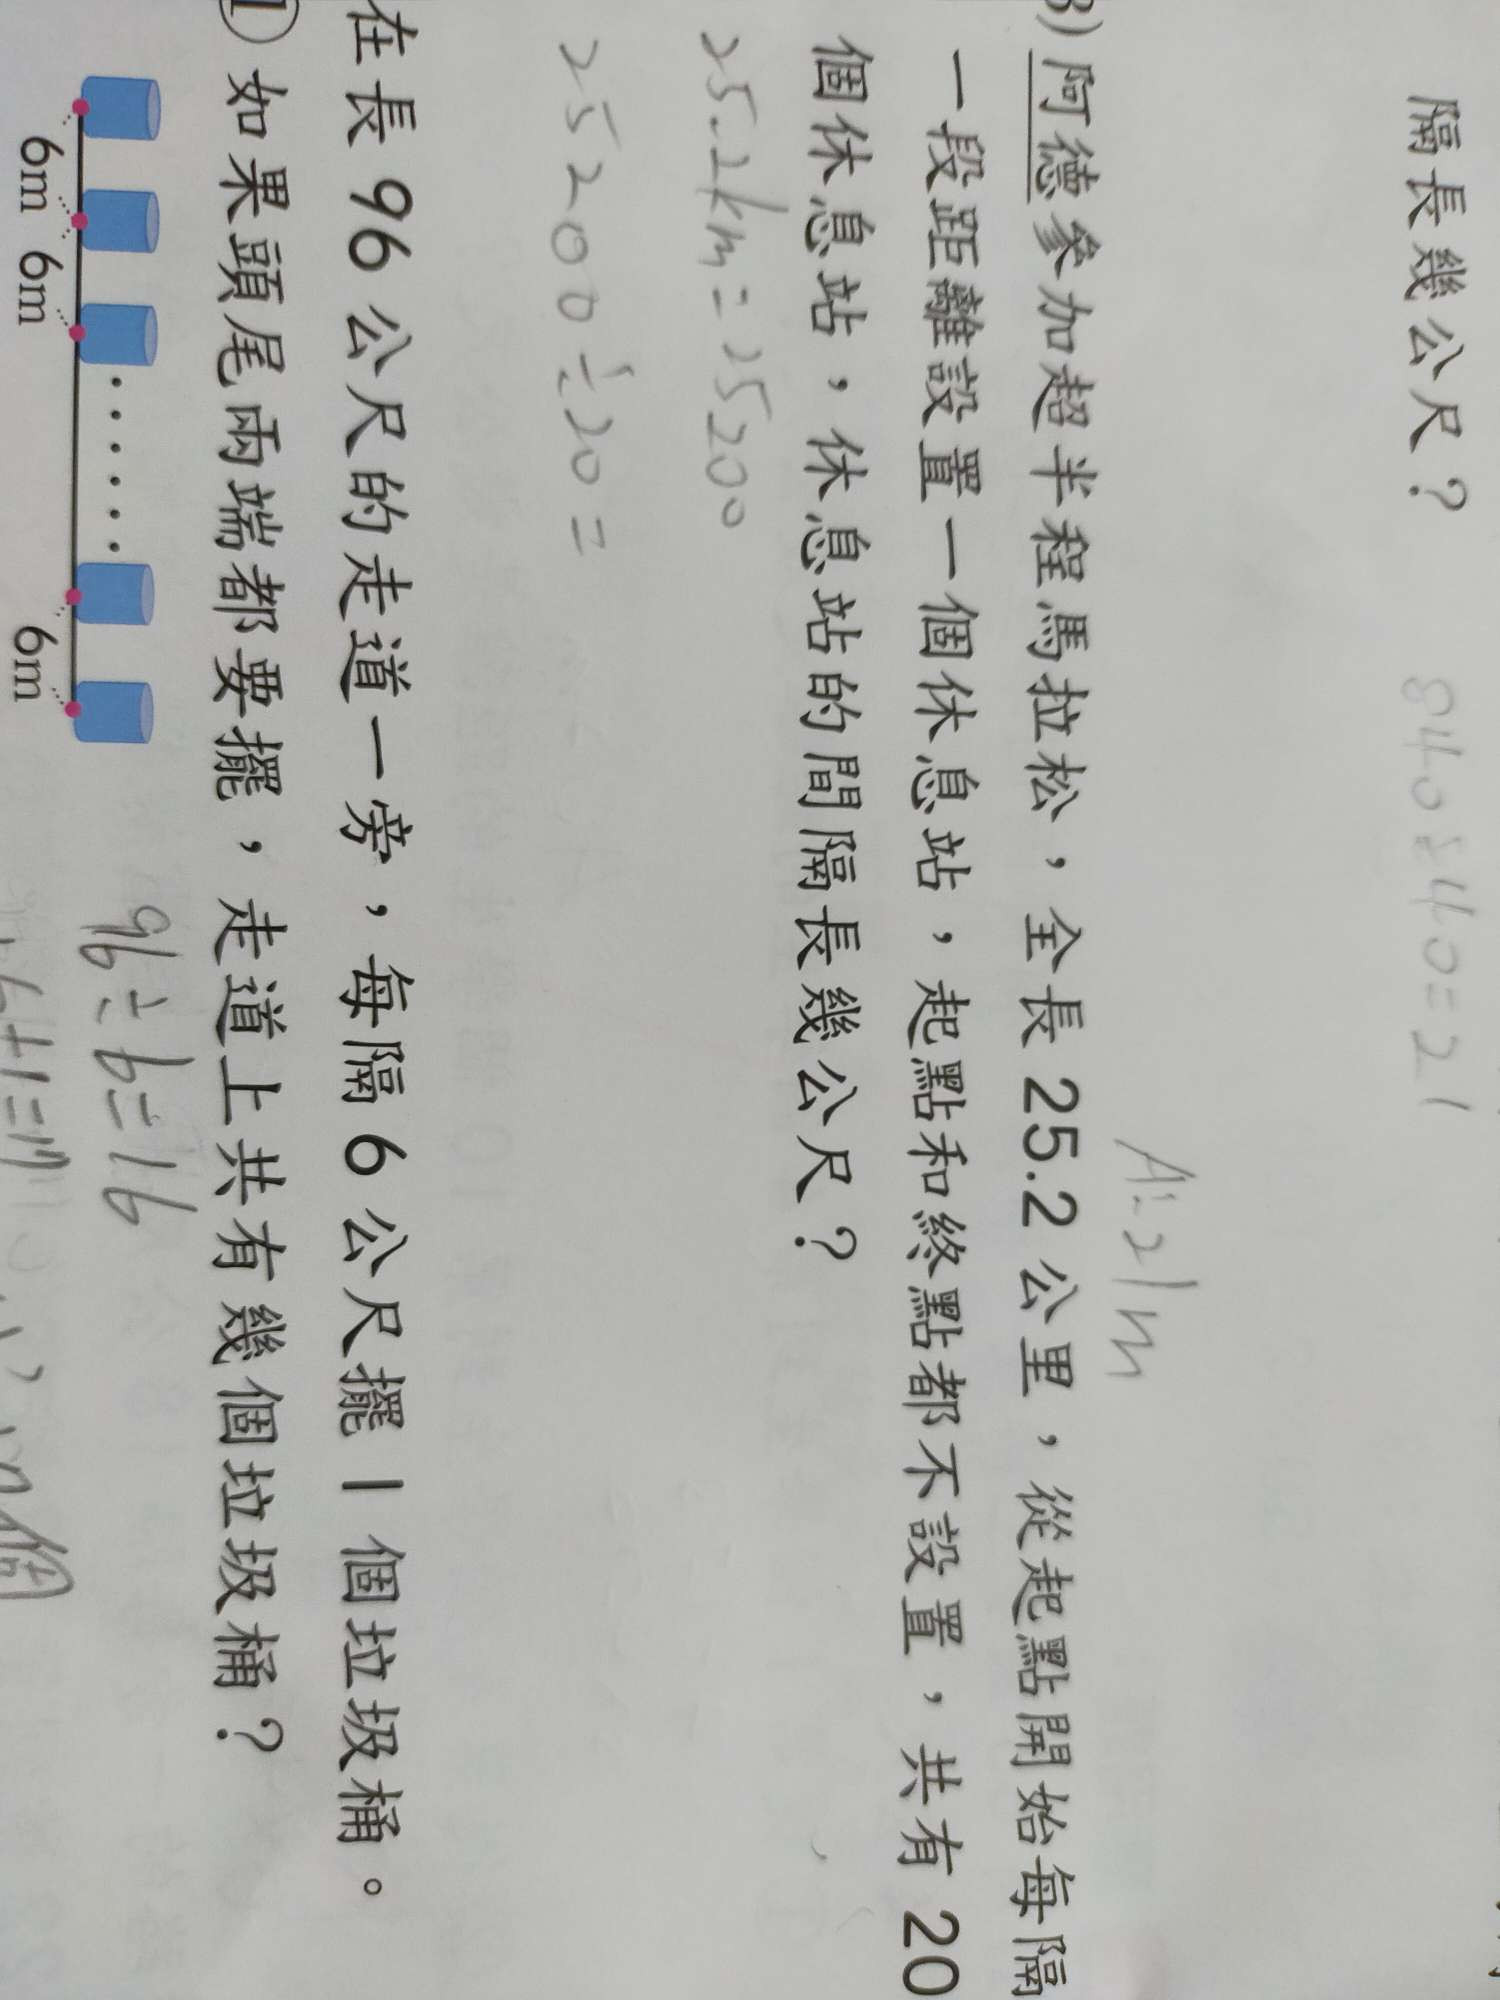 隔長幾公尺？
840÷40=21
A:21m
3) 阿德參加超半程馬拉松，全長 25.2 公里，從起點開始每隔
一段距離設置一個休息站，起點和終點都不設置，共有 20
個休息站，休息站的間隔長幾公尺？
25.2km=25200
25200÷20=
在長 96 公尺的走道一旁，每隔 6 公尺擺 1 個垃圾桶。
① 如果頭尾兩端都要擺，走道上共有幾個垃圾桶？
96÷6=16
6m 6m 6m
+1=17
個